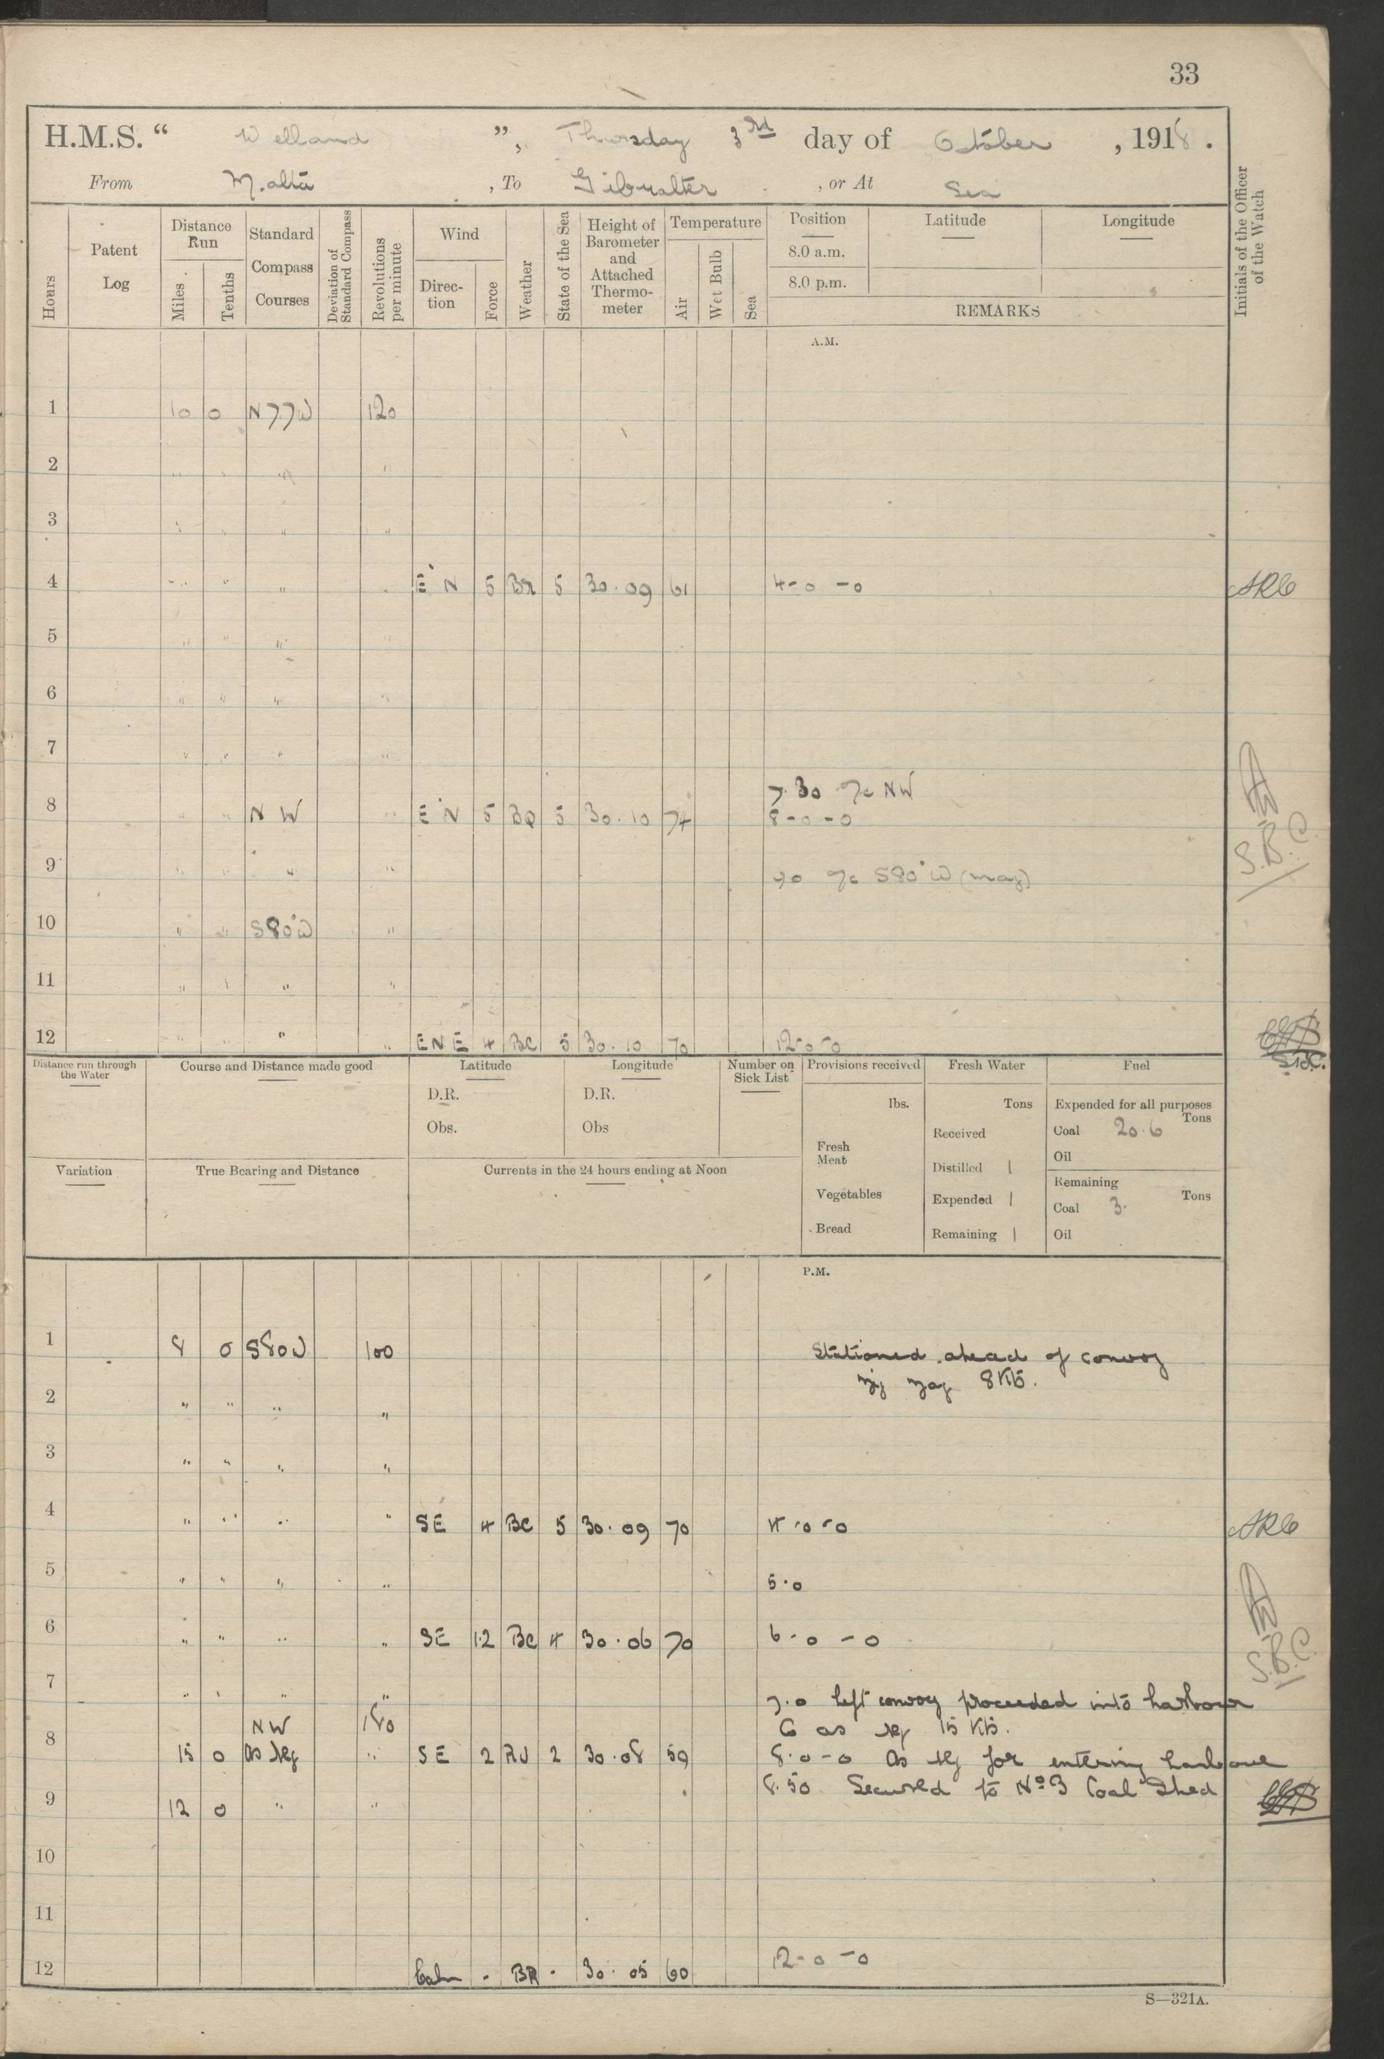 33
H.M.S. “ Welland ”, Thursday 3rd day of October , 1918 .
From Malta , To Gibralter , or At Sea
Hours
Patent Log
Distance Run
Miles
Tenths
Standard Compass Courses
Deviation of Standard Compass
Revolutions per minute
Wind
Direction
Force
Weather
State of the Sea
Height of Barometer and Attached Thermometer
Temperature
Air
Wet Bulb
Sea
Position
8.0 a.m.
8.0 p.m.
Latitude
Longitude
REMARKS
Initials of the Officer of the Watch
A.M.
1 10 0 N77W 120
2 " " " "
3 " " " "
4 " " " " E'N 5 BR 5 30.09 61 4-0-0
5 " " "
6 " " " "
7 " " " "
7.30 a/c NW
8 " " NW " E'N 5 BQ 5 30.10 74 8-0-0
9 " " " " a/c S80°W (mag)
10 " " S80°W "
11 " " " "
12 " " ENE 4 BC 5 30.10 70 12-0-0
S.B.C.
Distance run through the Water
Course and Distance made good
Latitude
D.R.
Obs.
Longitude
D.R.
Obs
Number on Sick List
Provisions received
lbs.
Fresh Meat
Vegetables
Bread
Fresh Water
Tons
Received
Distilled 1
Expended 1
Remaining 1
Fuel
Expended for all purposes
Tons
Coal 20.6
Oil
Remaining
Tons
Coal 3.
Oil
Variation
True Bearing and Distance
Currents in the 24 hours ending at Noon
P.M.
1 8 0 S80W 100 Stationed ahead of convoy
zig zag 8 Kts.
2 " " " "
3 " " " "
4 " " " " SE 4 BC 5 30.09 70 4.0-0
5 " " " " 5.0
6 " " " " SE 1.2 BC 4 30.06 70 6.0-0
S.B.C.
7 " " " " 7.0 left convoy proceeded into harbour
NW 180 Co as req 15 Kts.
8 15 0 as req " SE 2 2 30.08 59 8.0-0 as req for entering harbour
9 12 0 " " 8.50 Secured to No 3 Coal Shed
10
11
12 Calm - BR - 30.05 60 12-0-0
S—321A.